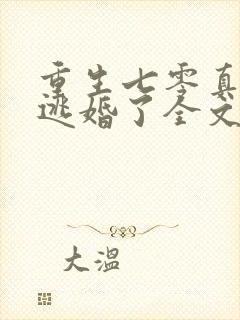 重生七零真
逃婚了全文
大温